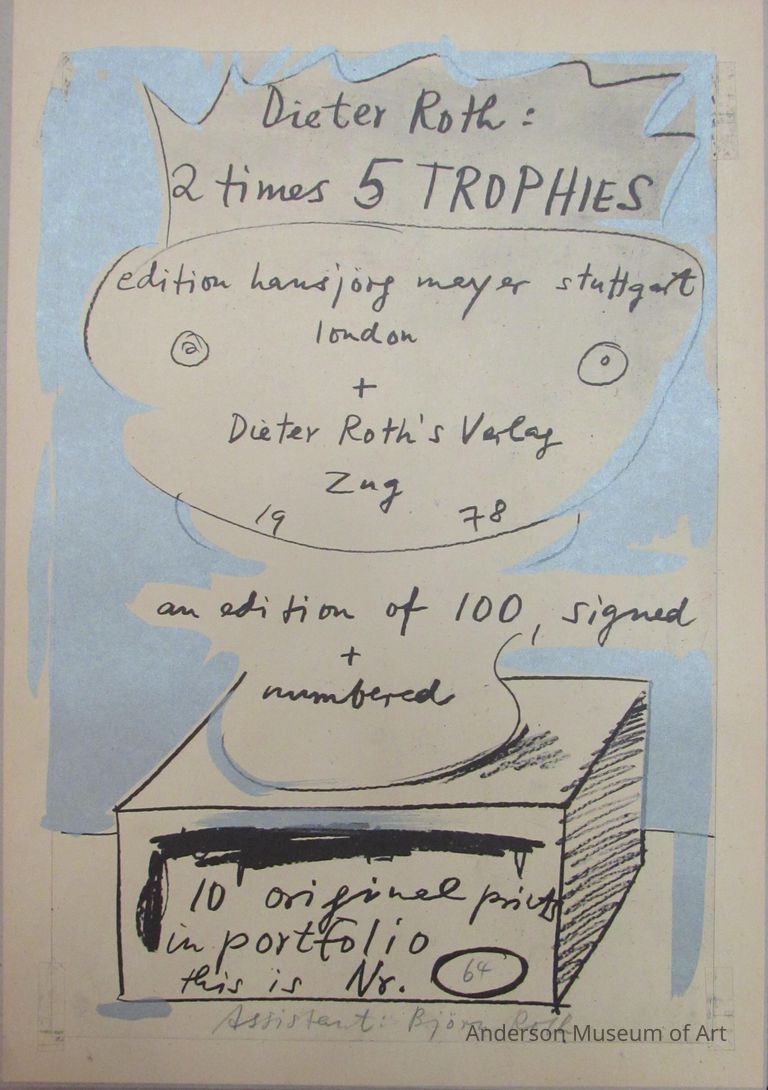 Dieter Roth:
2 times 5 TROPHIES
edition hansjörg mayer stuttgart
london
+
Dieter Roth's Verlag
Zug
19 78
an edition of 100, signed
+
numbered
10 original prints
in portfolio
this is Nr. 64
Assistant: Björn Roth
Anderson Museum of Art